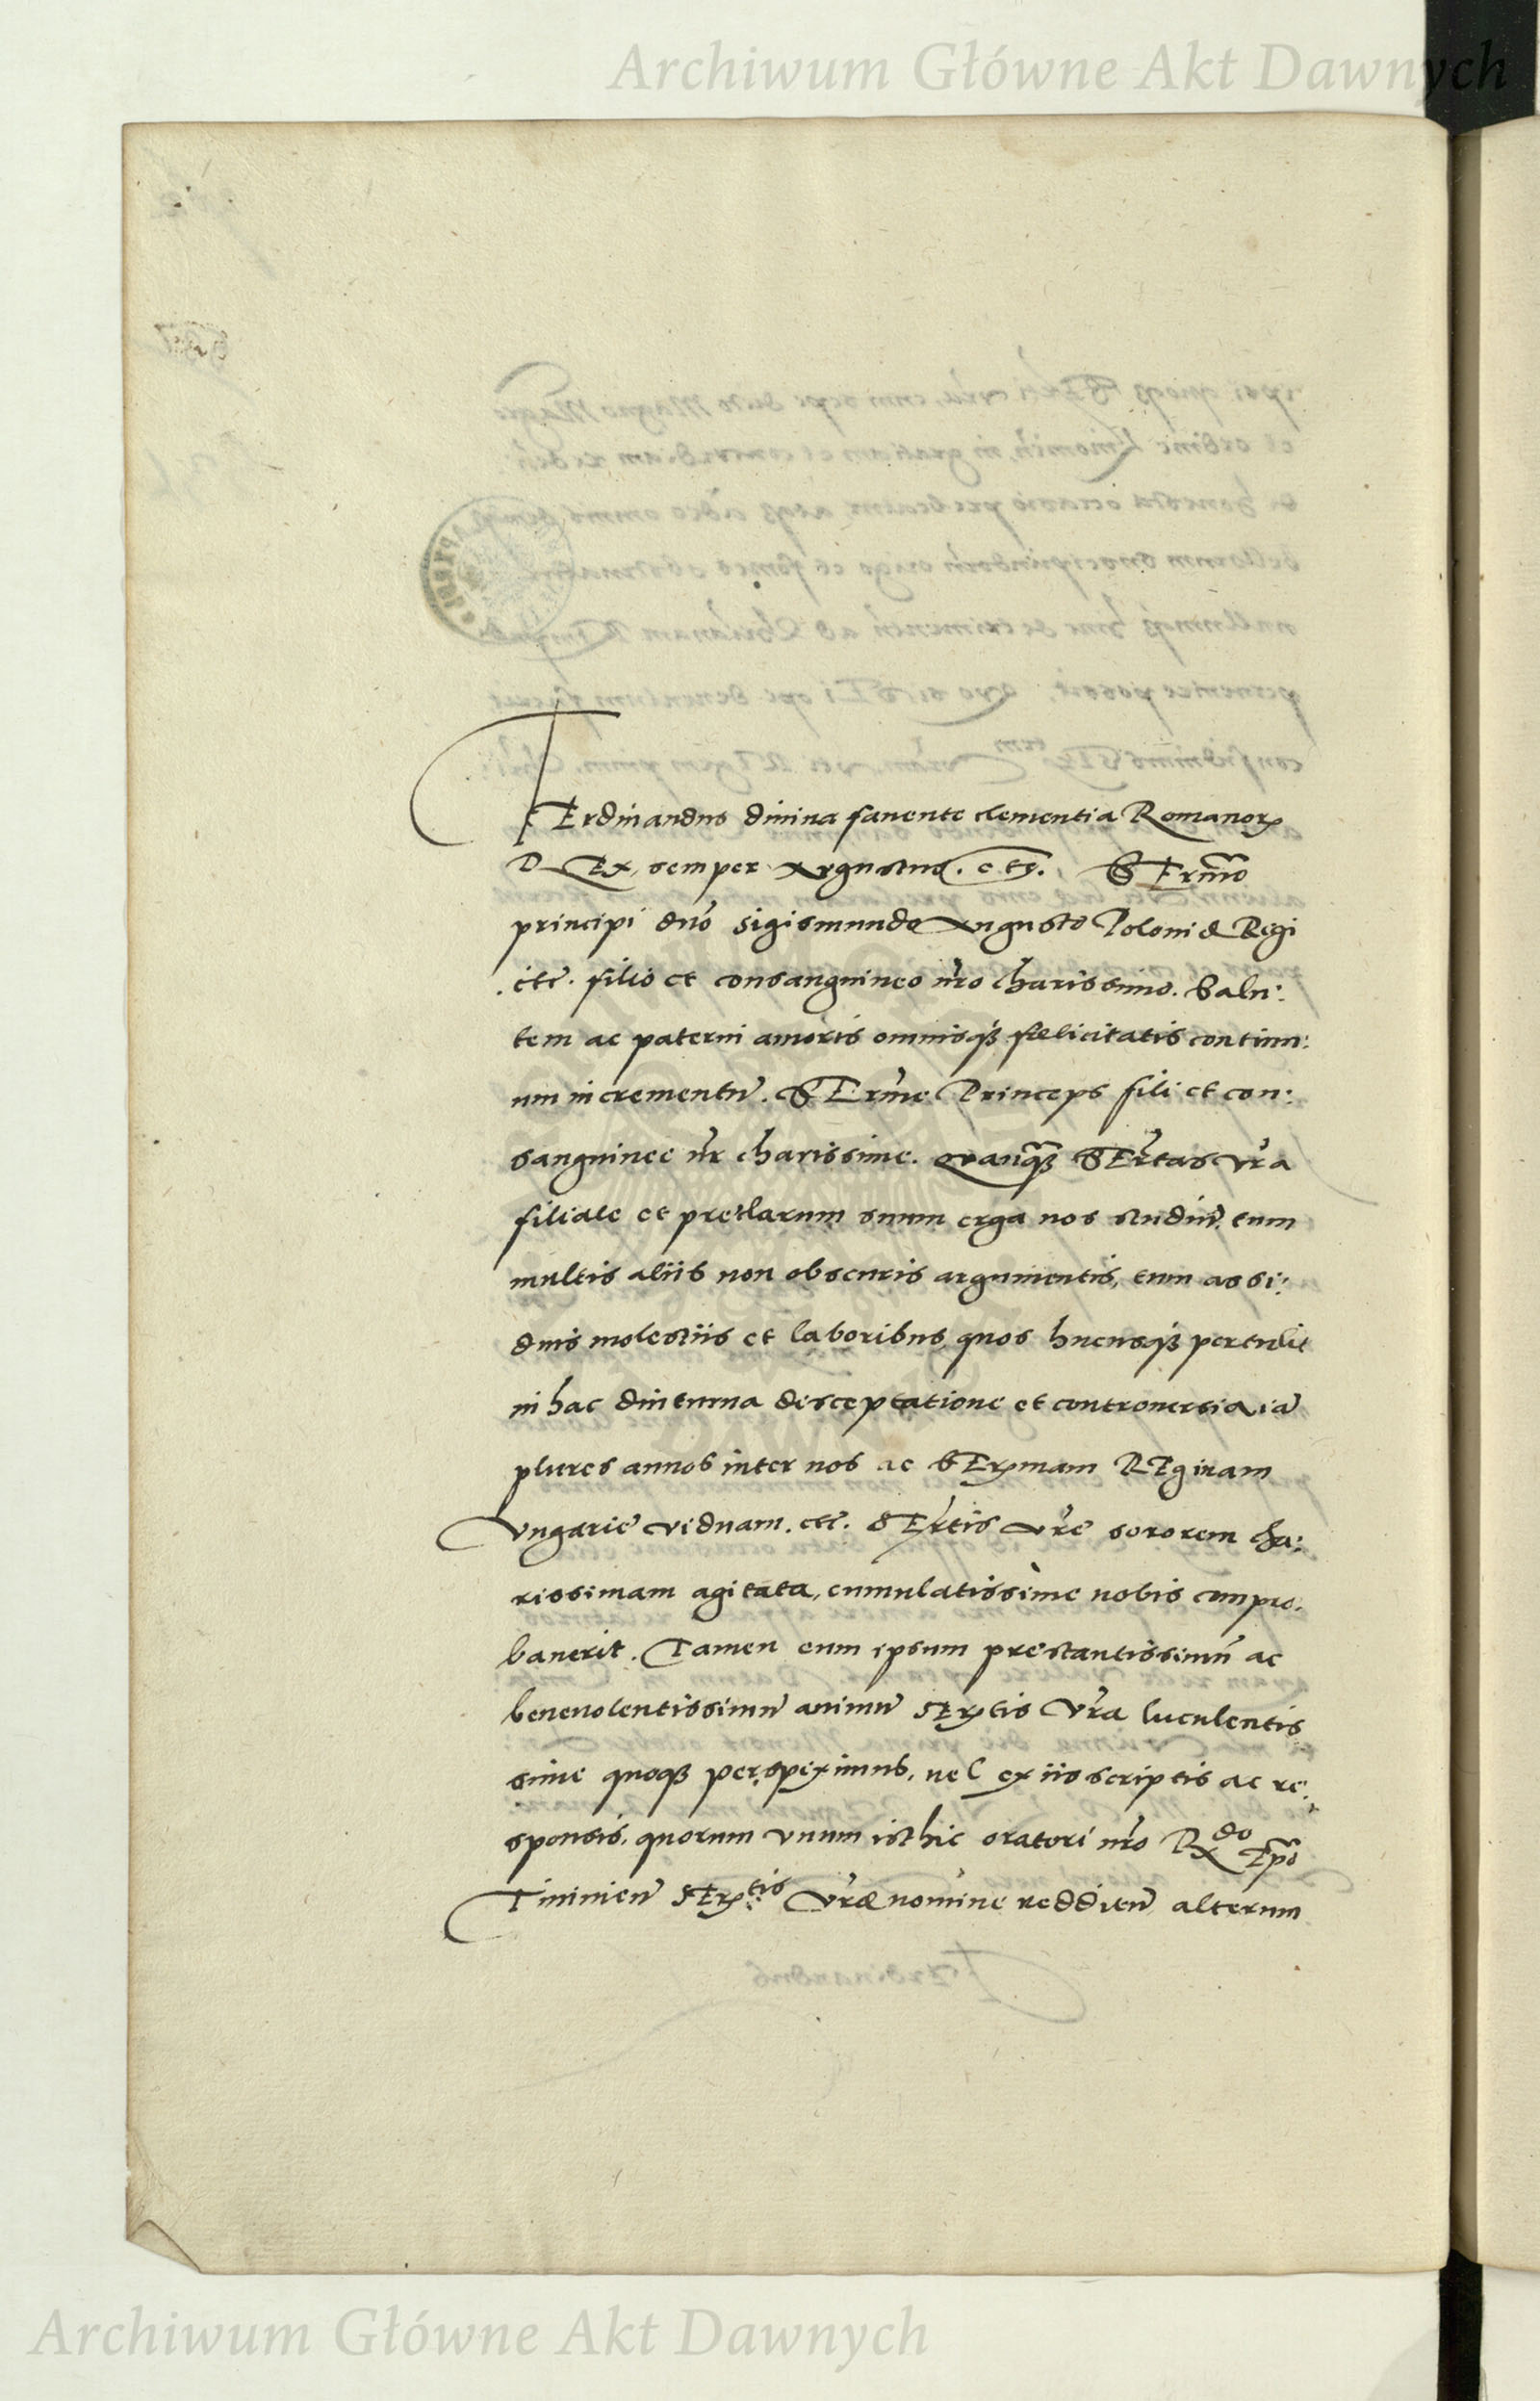 Archiwum Główne Akt Dawnych
FErdinandus divina favente clementia Romanorꝝ
REx, semper Augustus. etc. SErmo
principi dno Sigismundo Augusto Poloniæ Regi
.etc. filio et consanguineo nro charissimo. Salu:
tem ac paterni amoris omnisqꝫ fœlicitatis continu:
um incrementũ. SErme Princeps fili et con:
sanguinee nr charissime. Quanqꝫ SErtas vra
filiale et preclarum suum erga nos studiũ, tum
multis aliis non obscuris argumentis, tum assi:
duis molestiis et laboribus, quos hucusqꝫ pertulit
in hac diuturna disceptatione et controuersia, iã
plures annos inter nos ac SErmam REginam
Vngarie viduam. etc. SErtis vre sororem cha:
rissimam agitata, cumulatissime nobis compro:
bauerit. Tamen eum ipsum prestantissimũ ac
beneuolentissimũ animũ SErtis Vra luculentis
sime quoqꝫ perspeximus, vel ex iis scriptis ac re:
sponsis, quorum vnum isthic oratori nro Rdo Epo
Tininieñ SErtis Vræ nomine reddieñ alterum
Archiwum Główne Akt Dawnych